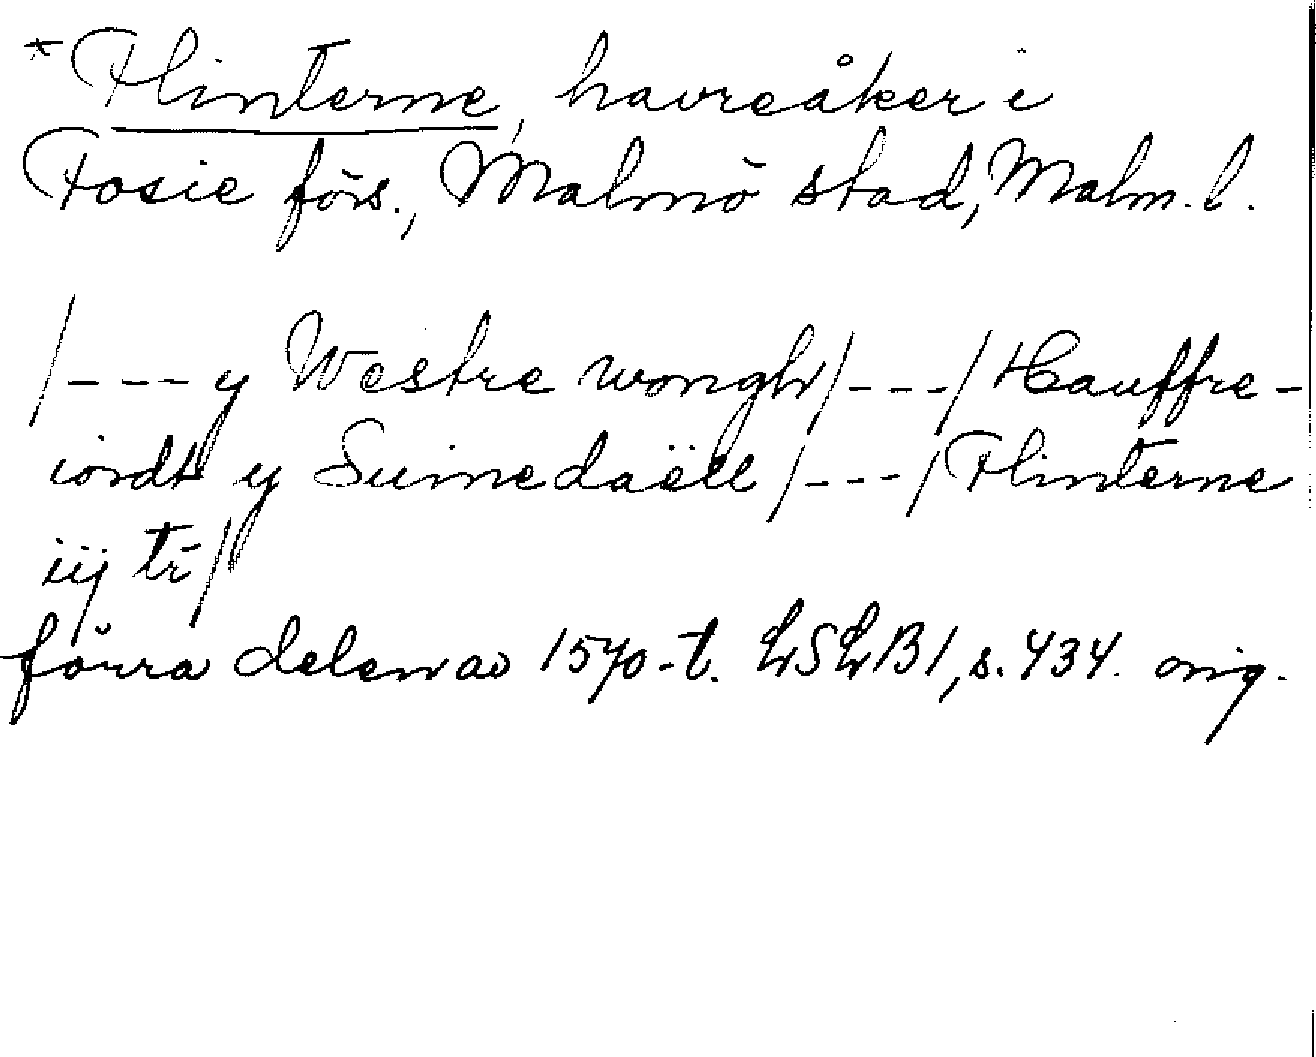 *Flinterne, havreåker i
Fosie förs., Malmö stad, Malm. l.
/---y Westre wongh/---/Hauffre-
iordt y Suinedaëll/---/Flinterne
iij tr̄/
förra delen av 1570-t. LSLB1, s. 434. orig.